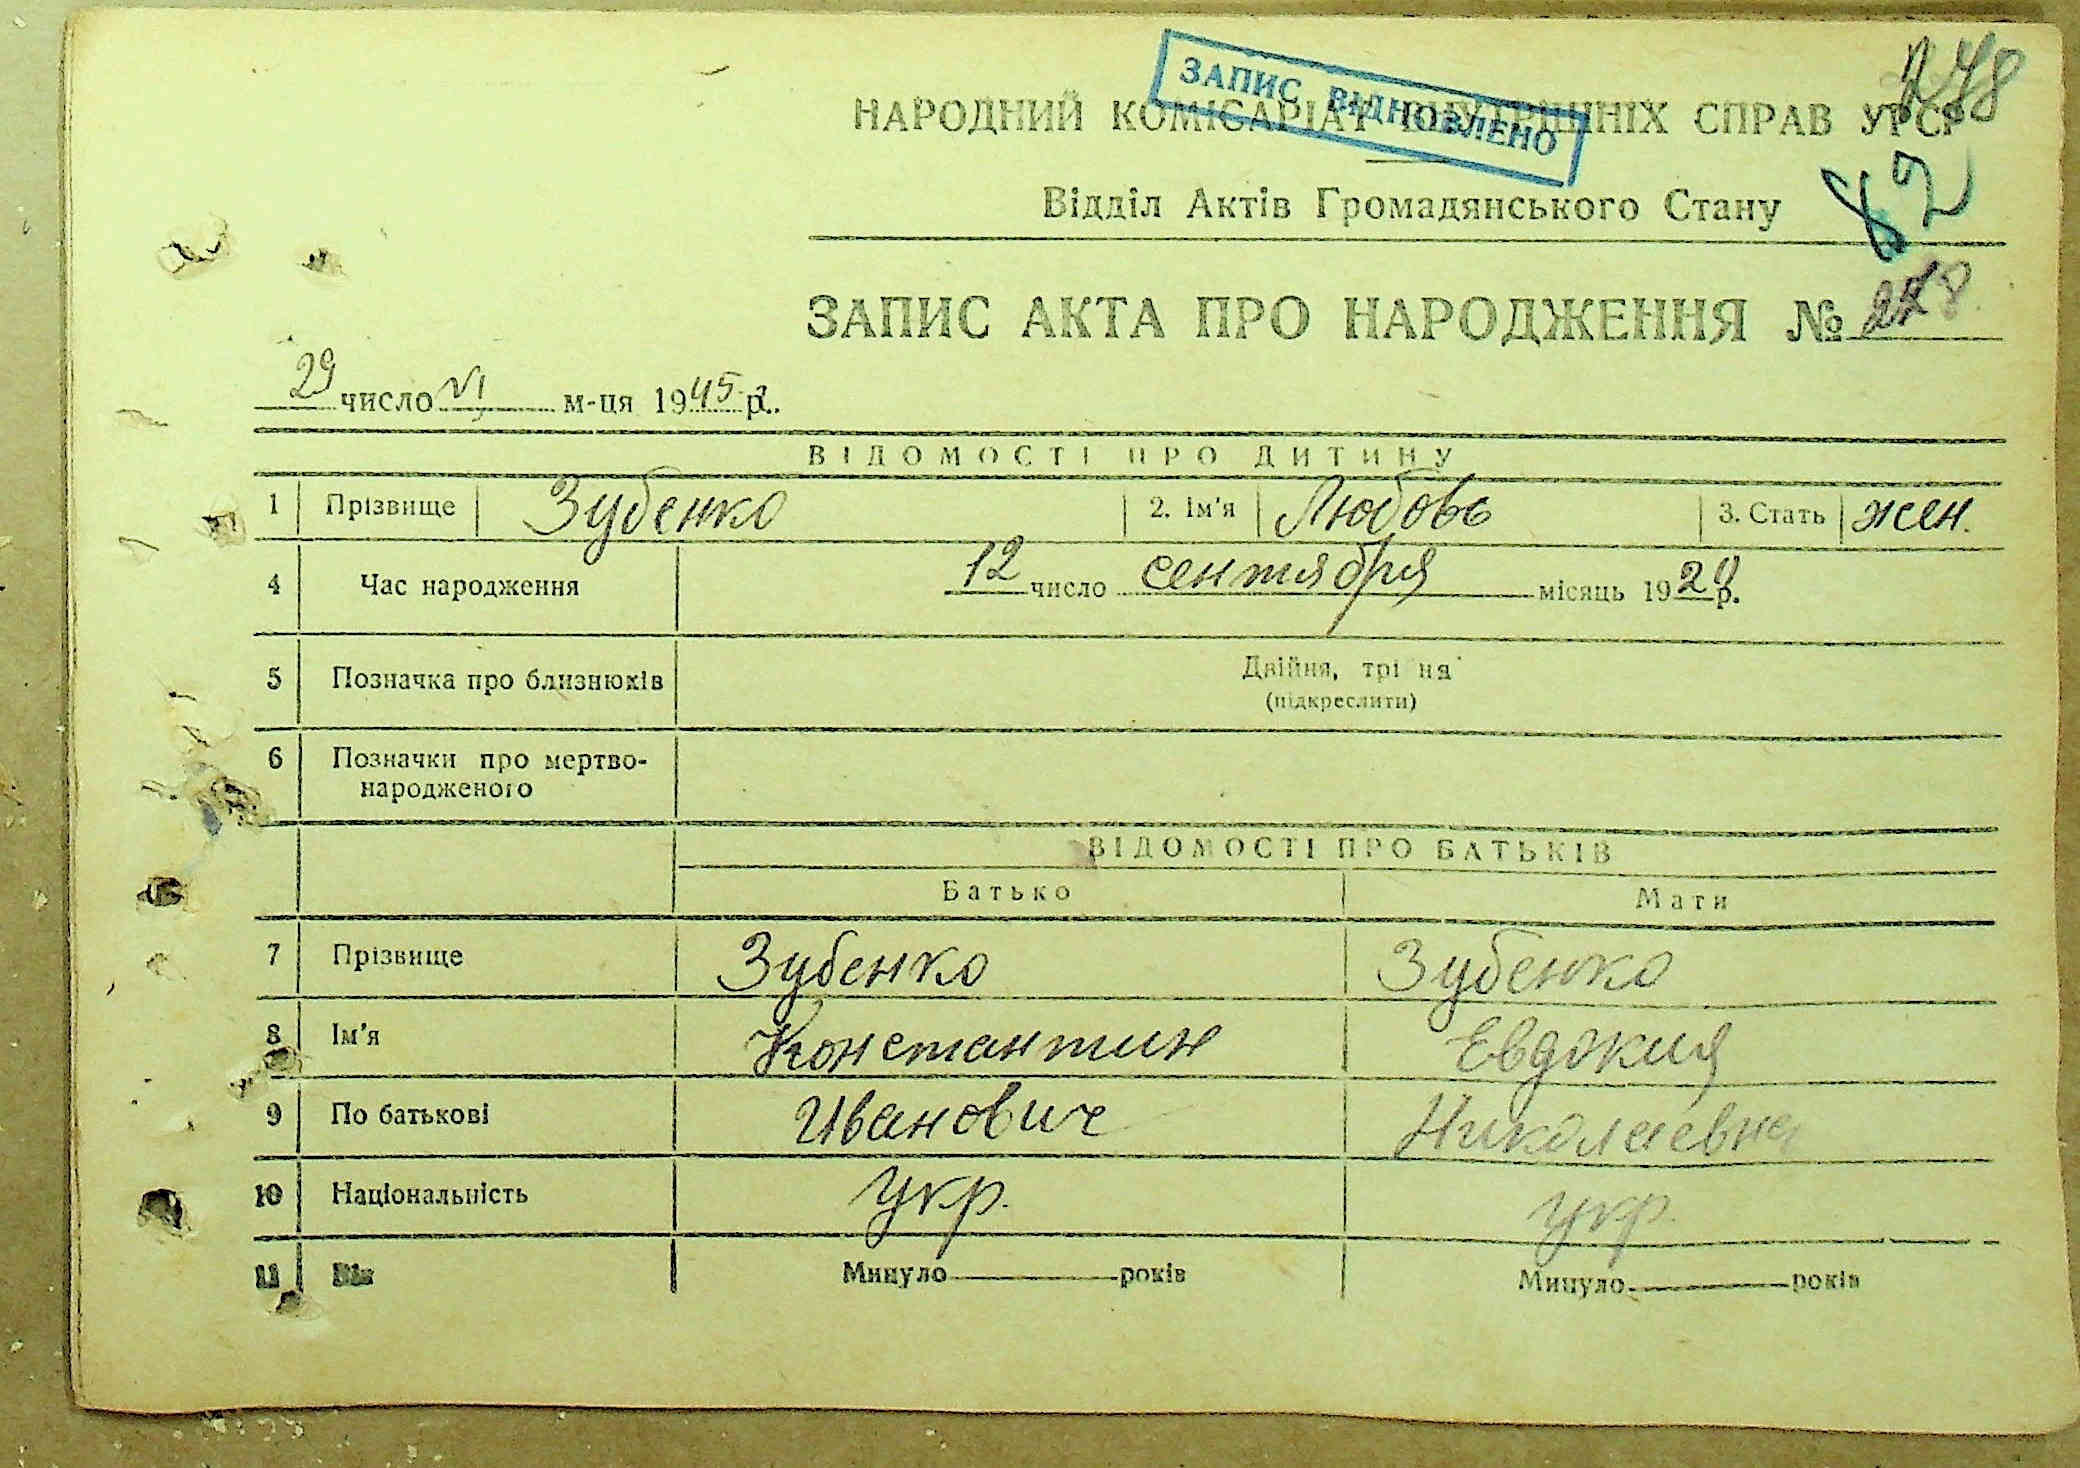 ЗАПИС ВІДНОВЛЕНО
НАРОДНИЙ КОМІСАРІАТ ВНУТРІШНІХ СПРАВ УРСР
82
Відділ Актів Громадянського Стану
ЗАПИС АКТА ПРО НАРОДЖЕННЯ № 278
29 число VI м-ця 1945 р.
ВІДОМОСТІ ПРО ДИТИНУ
1 Прізвище Зубенко 2. Ім'я Любовь 3. Стать жен.
4 Час народження 12 число сентября місяць 192 р.
5 Позначка про близнюків Двійня, трійня
(підкреслити)
6 Позначки про мертво-
народженого
ВІДОМОСТІ ПРО БАТЬКІВ
Батько Мати
7 Прізвище Зубенко Зубенко
8 Ім'я Константин Евдокия
9 По батькові Иванович Николаевна
10 Національність укр. укр.
11 Вік Минуло років Минуло років